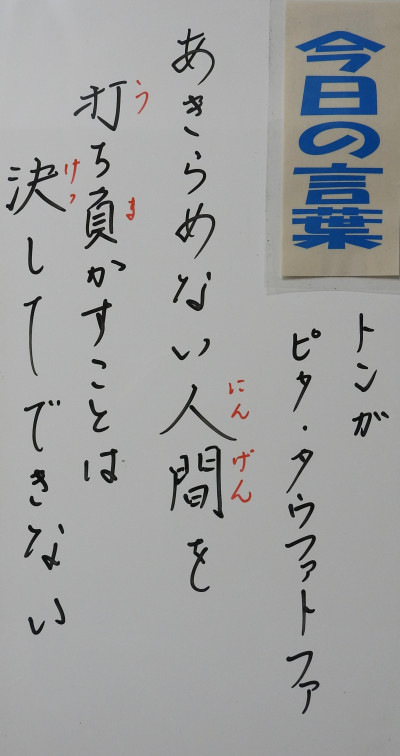 今日の言葉
トンガ
ピタ・タウファトファ
あきらめない人間を
にんげん
打ち負かすことは
う
ま
決してできない
けっ